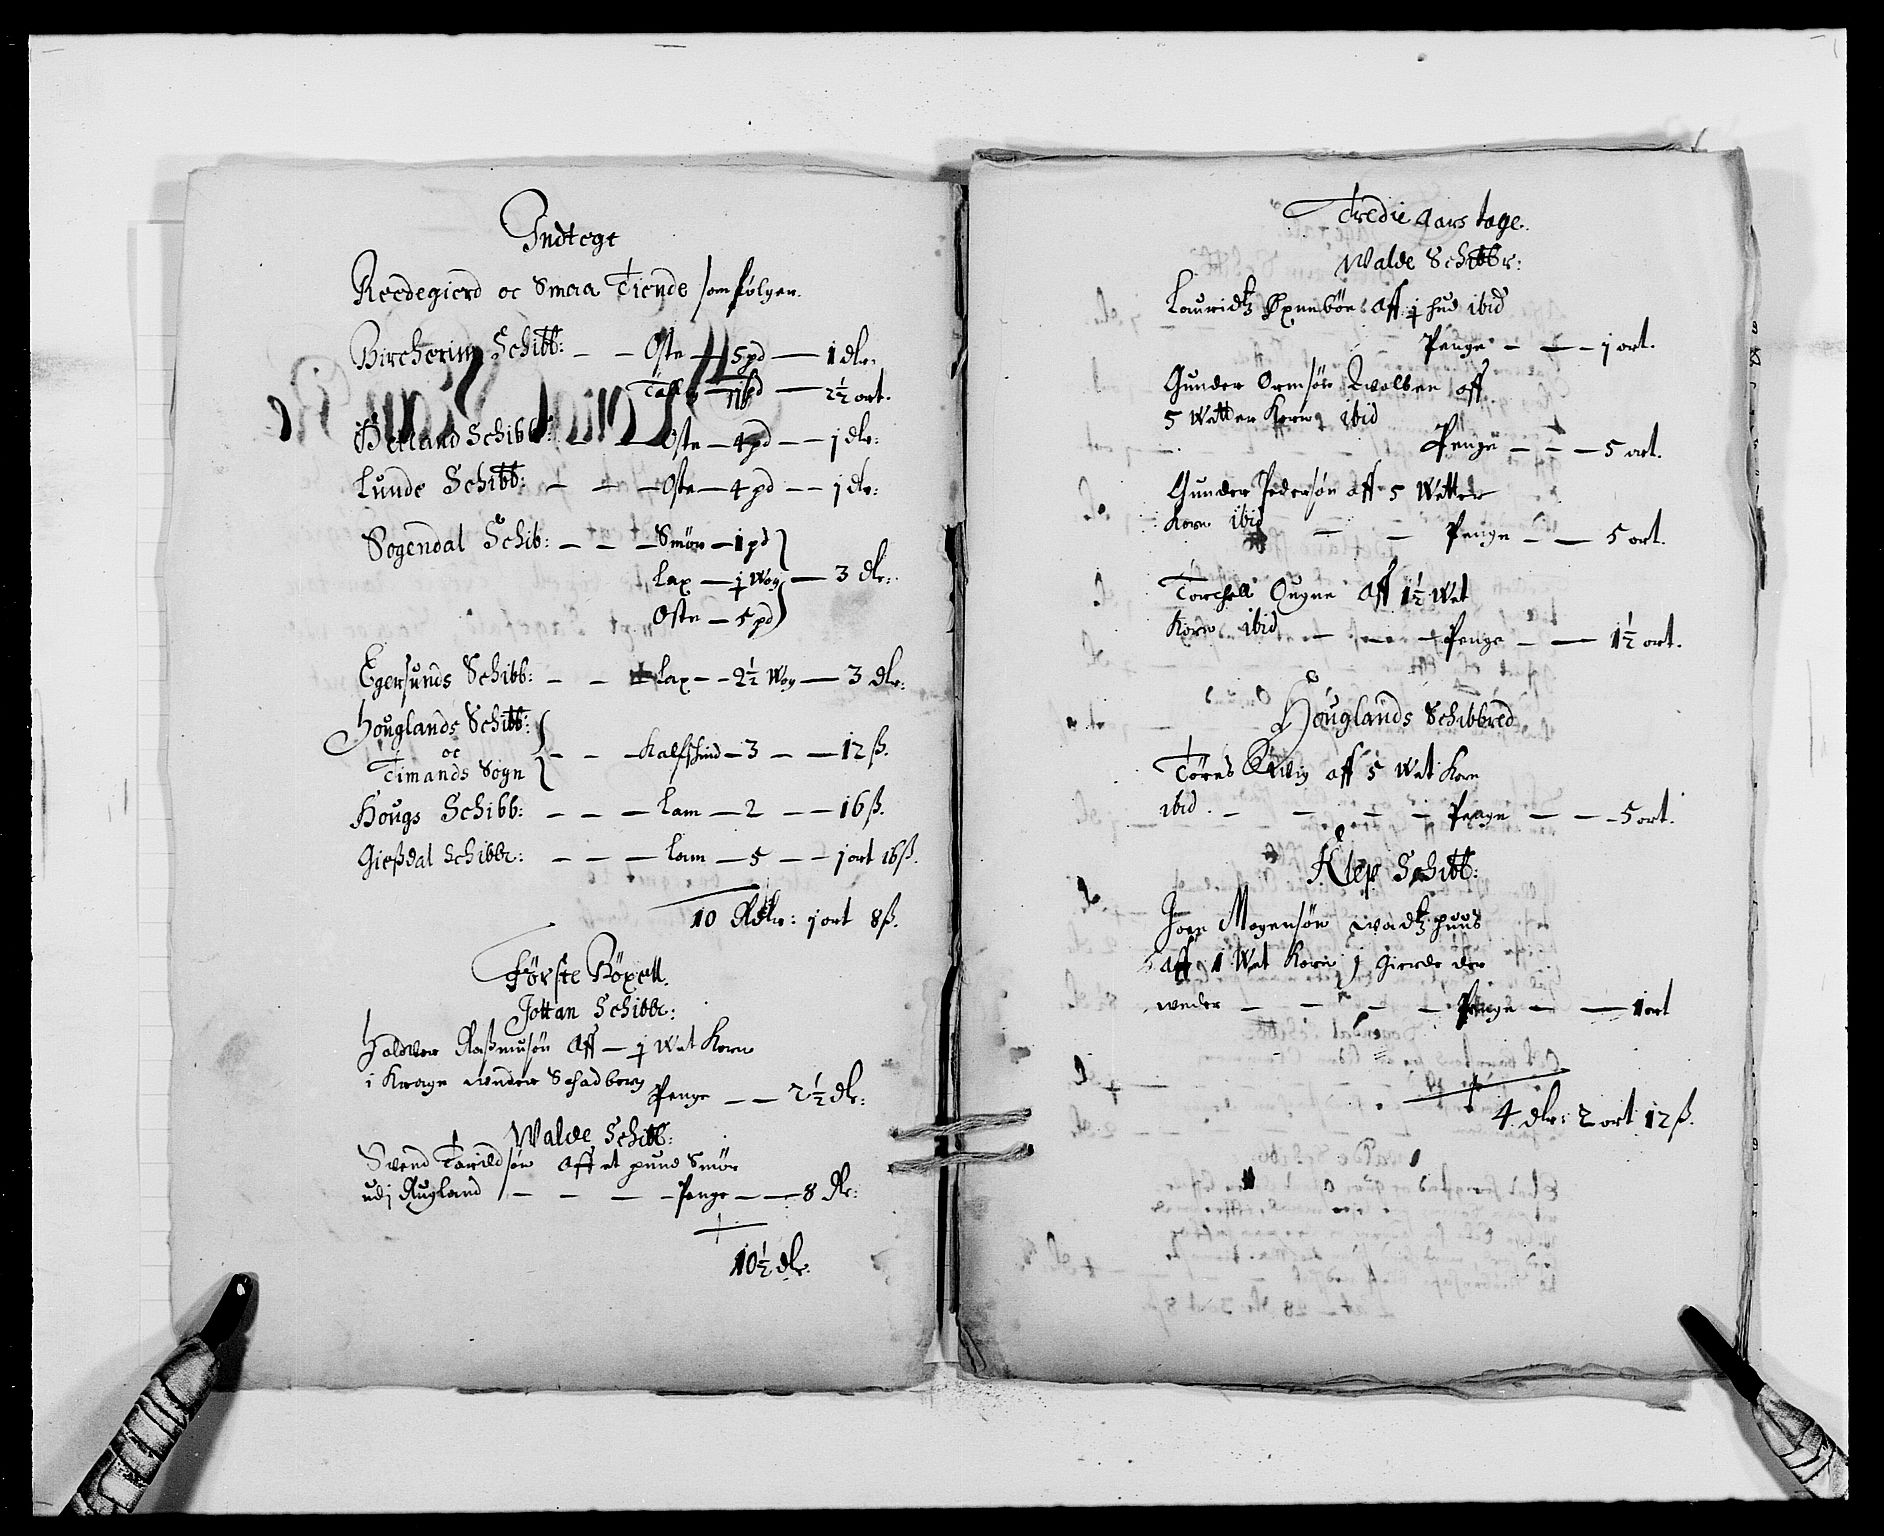 Indtegt
Reedegierd oc Smaa Tiende som følger
Bircherim Schibb: – – Oste – 5 pd – 1 dlr:
Tallg – 1 pd – 2½ ort.
Hetland Schibb: – – Oste – 4 pd – j dlr:
Lunde Schibb: – – Oste – 4 pd – j dlr:
Sogendal Schib: – – – Smør – 1 pd
Lax – j Wog – 3 dlr:
Oste – 5 pd
Egersunds Schibb: – – Lax – – 2½ Wog – 3 dlr:
Houglands Schibb:
oc
Timands Sogn – – Kalfskind – 3 – – 12 ß.
Hougs Schibb: – – – Lam – 2 – – 16 ß.
Gießdal Schibbr: – – – Lam – 5 – – j ort 16 ß.
10 Rdlr: j ort 8 ß.
Første Böxell.
Jottan Schibbr:
Holdver Raßmusøn aff – j Wet Korn
i Krage under Schadberg
Penge – – 2½ dlr:
Walde Schibb:
Svend Tarildsøn aff et pund Smør
udj Rugland – – – – Penge – – 8 dlr:
10½ dlr:
Tredie Aars tage.
Walde Schibbr:
Lauridtz Øxnebøe aff j hud ibid
Penge – – – j ort.
Gunder Ormsøn aff
5 Wetter Korn ibid
Penge – – – 5 ort.
Gunder Pedersøn aff 5 Wetter
Korn ibid – – Penge – – 5 ort.
Torchell Ougne aff 1½ Wet
Korn ibid – – – Penge – – 1½ ort.
Houglands Schibbred
Tøres aff 5 Wet Korn
ibid. – – – – Penge – – – 5 ort.
Klep Schibb:
Joen Mogensøn
aff 1 Wet Korn j Gierde der
under – – – – Penge – – 1 ort
4 dlr: 2 ort 12 ß.